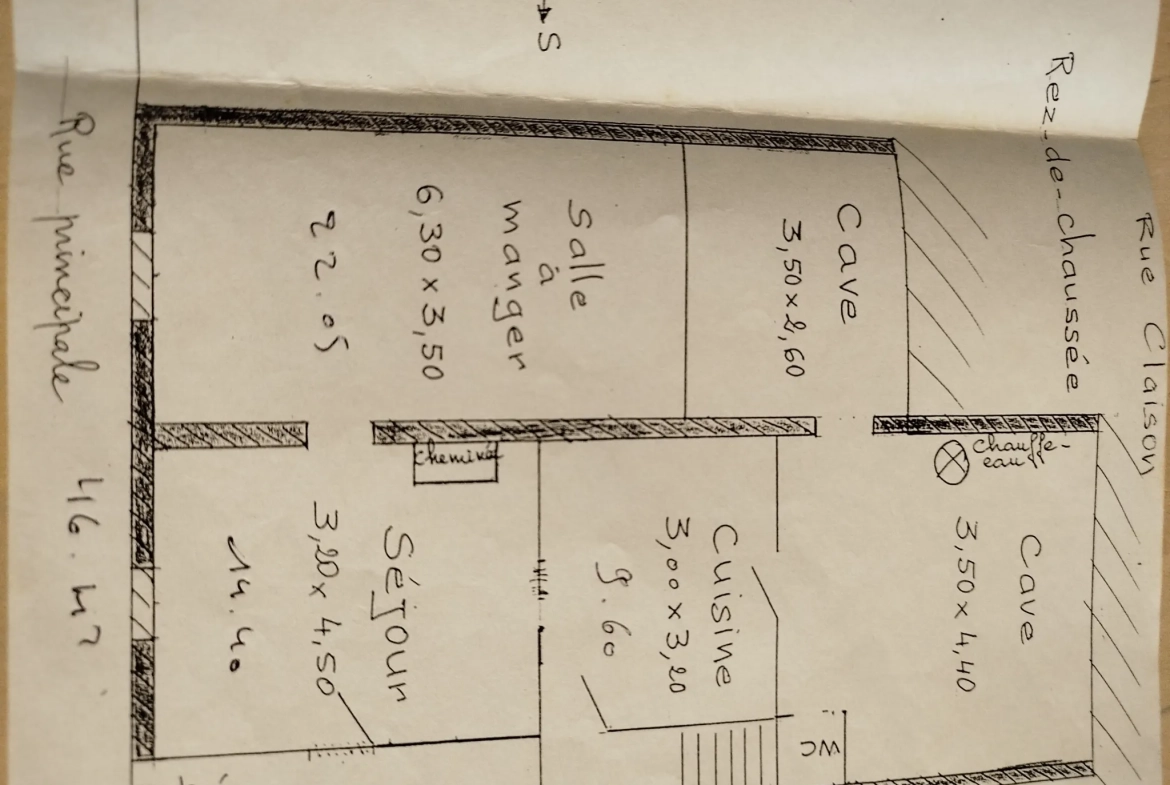 S
Rue Claison
Rez-de-chaussée
Cave
3,50 x 2,60
Salle
à
manger
6,30 x 3,50
22.05
Chauffe-
eau
Cave
3,50 x 4,40
Cuisine
3,00 x 3,20
9.60
WC
Cheminé
Séjour
3,20 x 4,50
14.40
Rue principale 46. m2